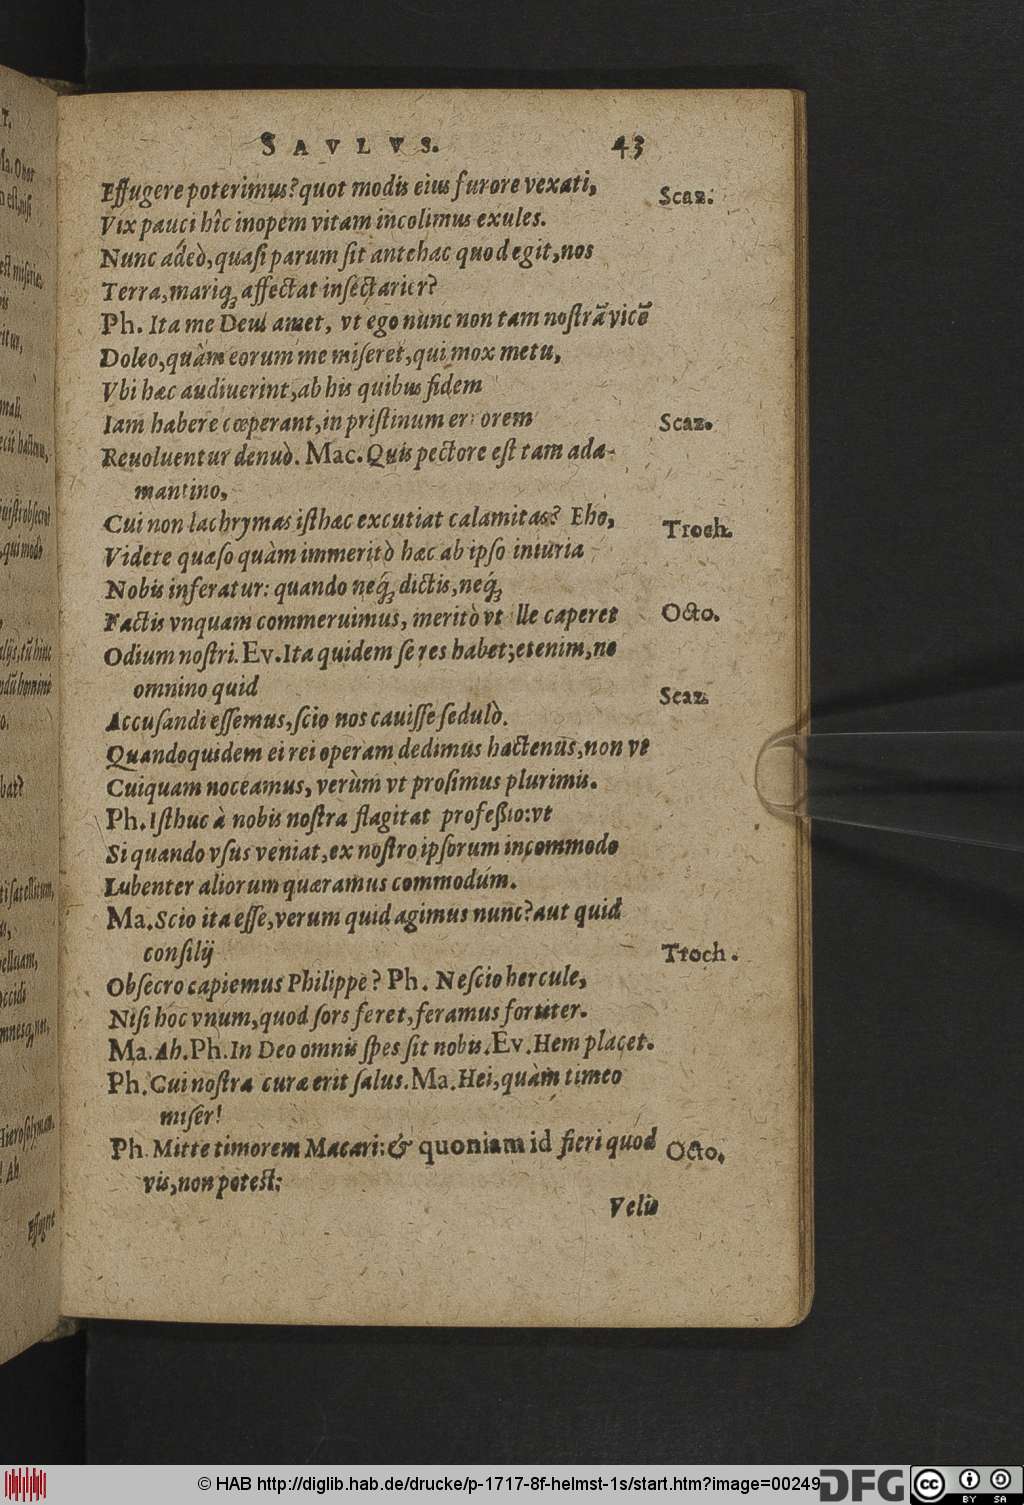 SAVLVS. 43
Effugere poterimus? quot modis eius furore vexati, Scaz.
Vix pauci hîc inopem vitam incolimus exules.
Nunc adeò, quasi parum sit antehac quod egit, nos
Terra, mariq; affectat insectarier?
Ph. Ita me Deus amet, vt ego nunc non tam nostrã vicẽ
Doleo, quàm eorum me miseret, qui mox metu,
Vbi hæc audiuerint, ab his quibus fidem
Iam habere cœperant, in pristinum er orem Scaz.
Reuoluentur denuò. Mac. Quis pectore est tam ada-
mantino,
Cui non lachrymas isthæc excutiat calamitas? Eho, Troch.
Videte quæso quàm immeritò hæc ab ipso iniuria
Nobis inferatur: quando neq́; dictis, neq́;
Factis vnquam commeruimus, meritò vt lle caperet Octo.
Odium nostri. Ev. Ita quidem se res habet; etenim, ne
omnino quid Scaz.
Accusandi essemus, scio nos cauisse sedulò.
Quandoquidem ei rei operam dedimus hactenus, non vt
Cuiquam noceamus, verùm vt prosimus plurimis.
Ph. Isthuc à nobis nostra flagitat professio: vt
Si quando vsus veniat, ex nostro ipsorum incommodo
Lubenter aliorum quæramus commodúm.
Ma. Scio ita esse, verum quid agimus nunc? aut quid
consilij Troch.
Obsecro capiemus Philippe? Ph. Nescio hercule,
Nisi hoc vnum, quod sors feret, feramus fortiter.
Ma. Ah. Ph. In Deo omnis spes sit nobis. Ev. Hem placet.
Ph. Cui nostra curæ erit salus. Ma. Hei, quàm timeo
miser!
Ph. Mitte timorem Macari: & quoniam id fieri quod Octo.
vis, non potest;
Velis
© HAB http://diglib.hab.de/drucke/p-1717-8f-helmst-1s/start.htm?image=00249
DFG
cc BY SA